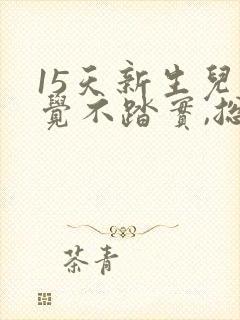 15天新生兒
覺不踏實,總
茶青